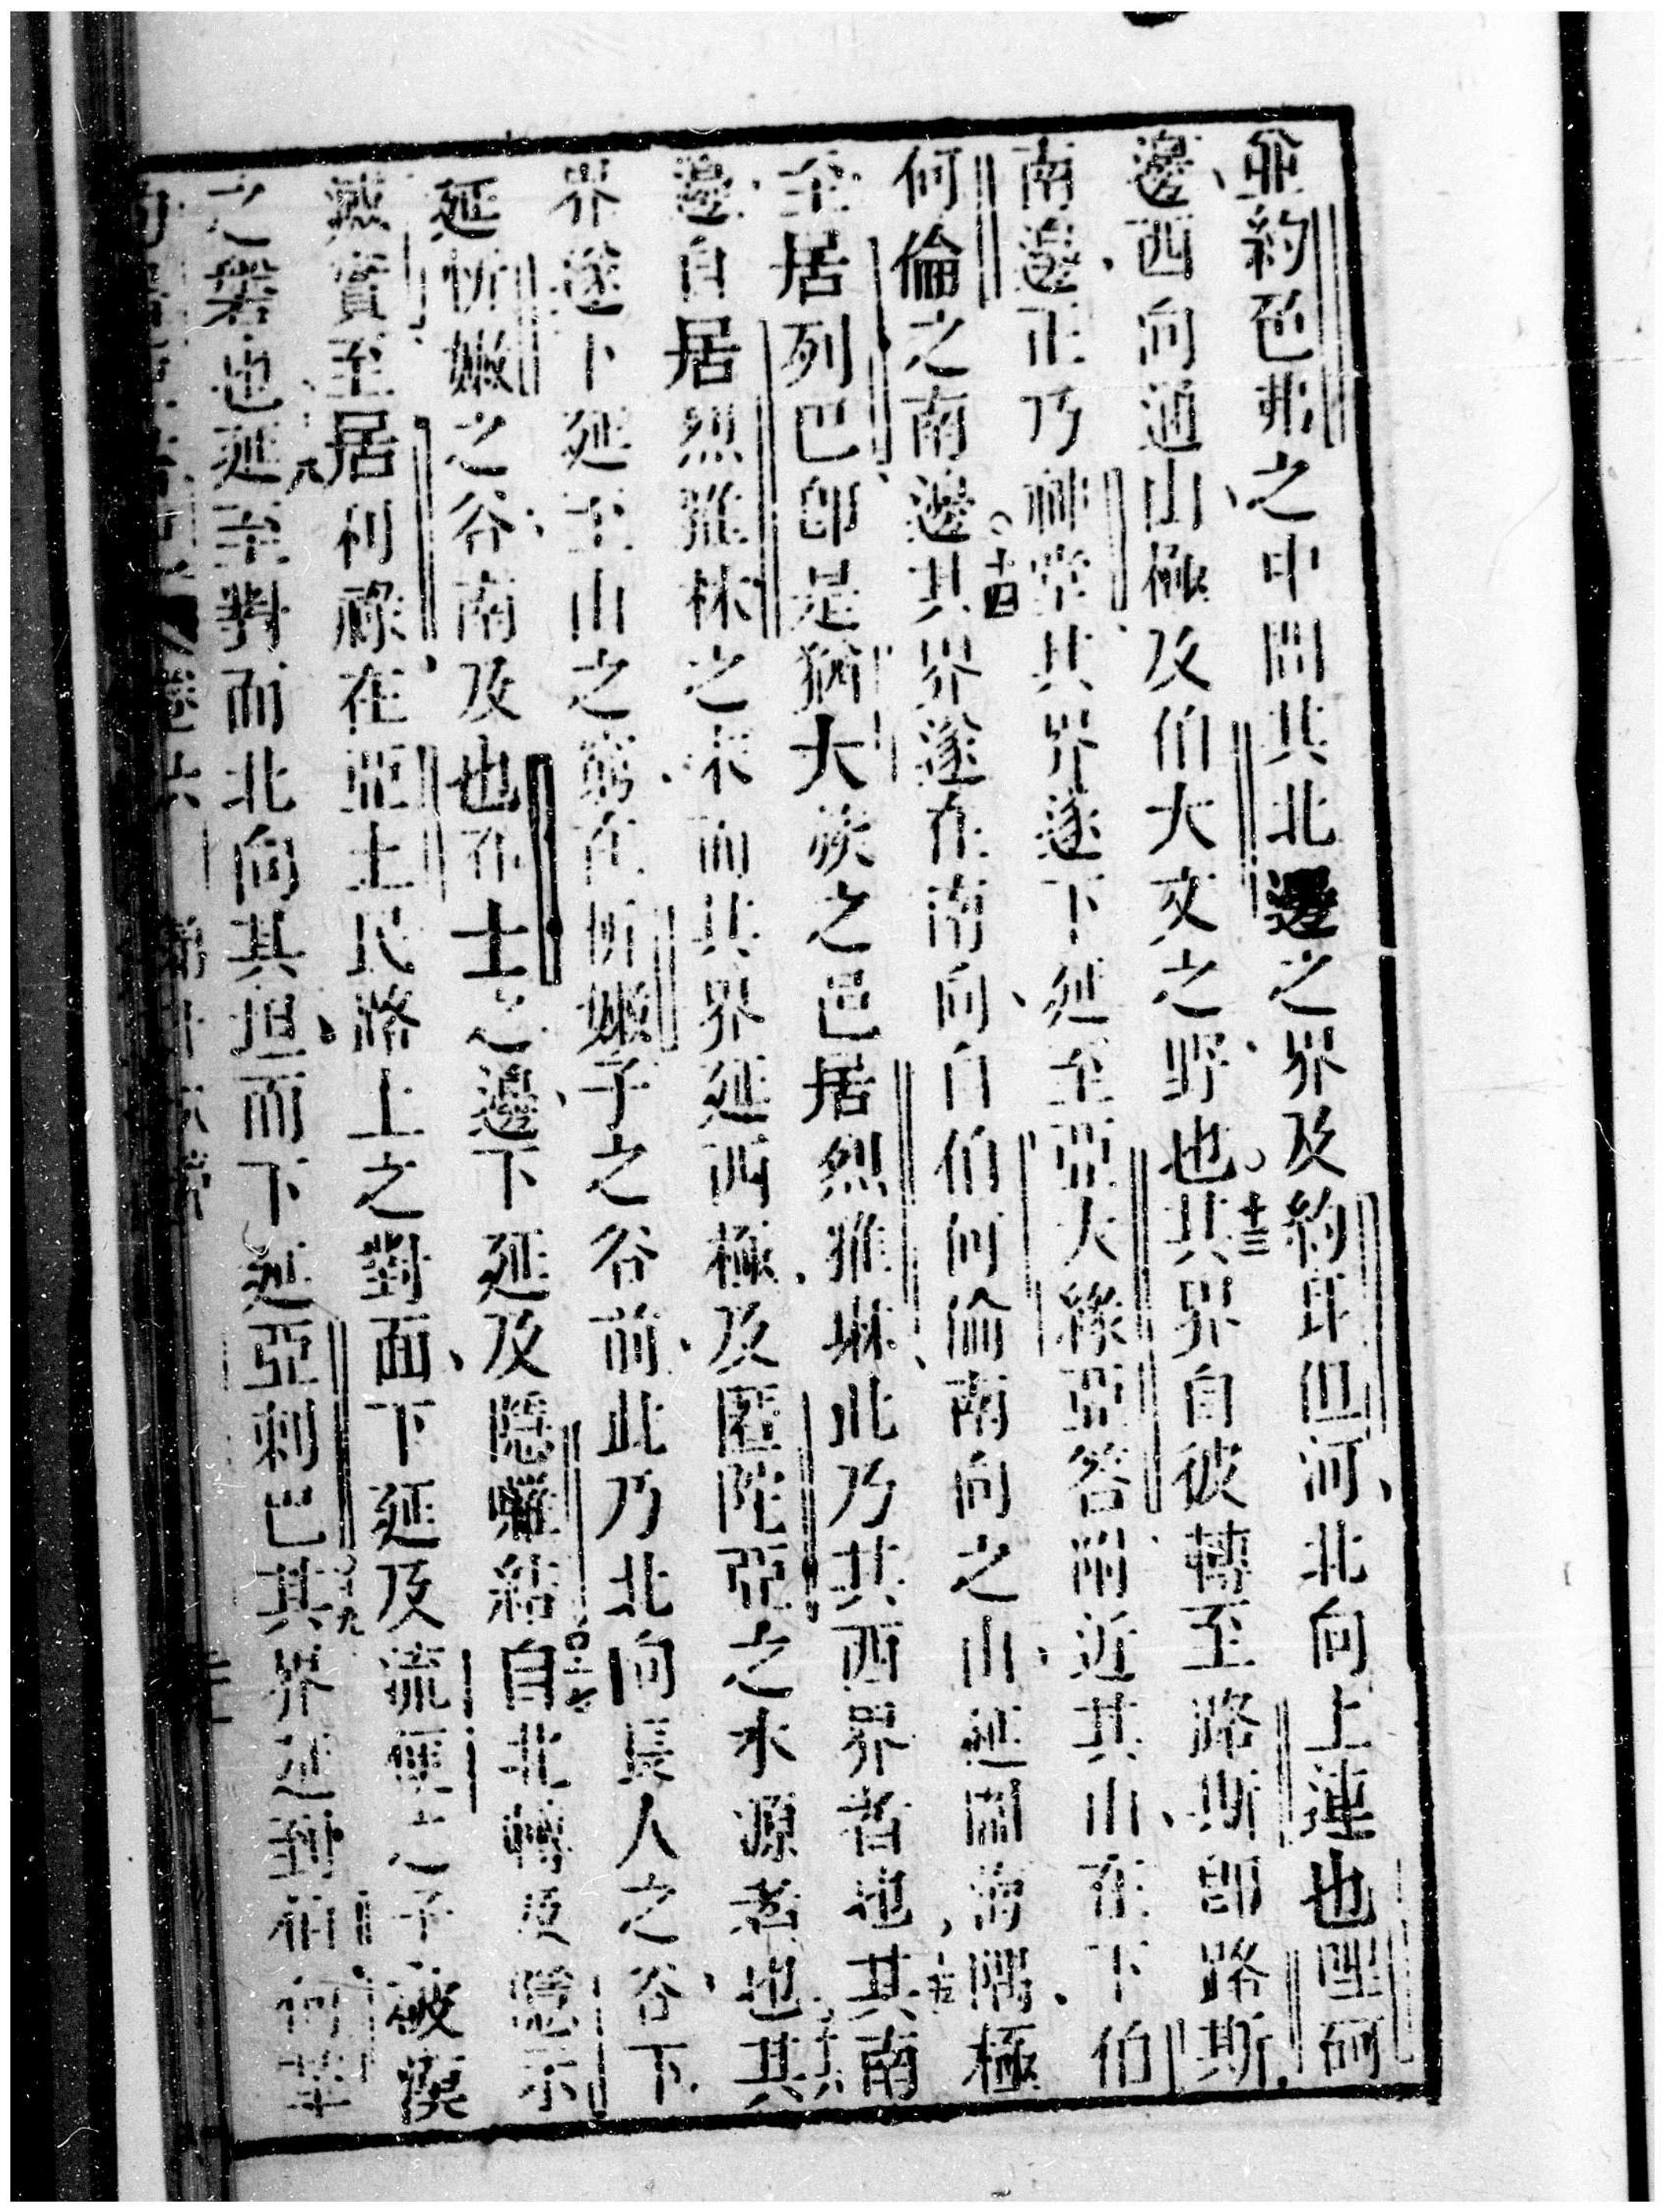 並約色弗之中間其北邊之界及約耳但河北向上蓮也耶柯
邊西向道山極及伯大文之野也○十三其界自彼轉至路斯卽路斯
南邊正乃神堂其界遂下延至亞大綠亞答爾近其山在下伯
何倫之南邊○十四其界遂在南向自伯何倫南向之山延圍海隅極
至居列巴卽是猶大族之邑居烈雅琳此乃其西界者也十五其南
邊自居烈雅林之末而其界延西極及匿陀亞之水源者也十六其
界遂下延至山之窮在忻嫩子之谷前此乃北向長人之谷下
延忻嫩之谷南及也布士之邊下延及隱囉結○十七自北轉及隱示
至居利祿在亞土民路上之對面下延及流便之子
之磐也十八延至對而北向其垣而下延亞剌巴○十九其界延